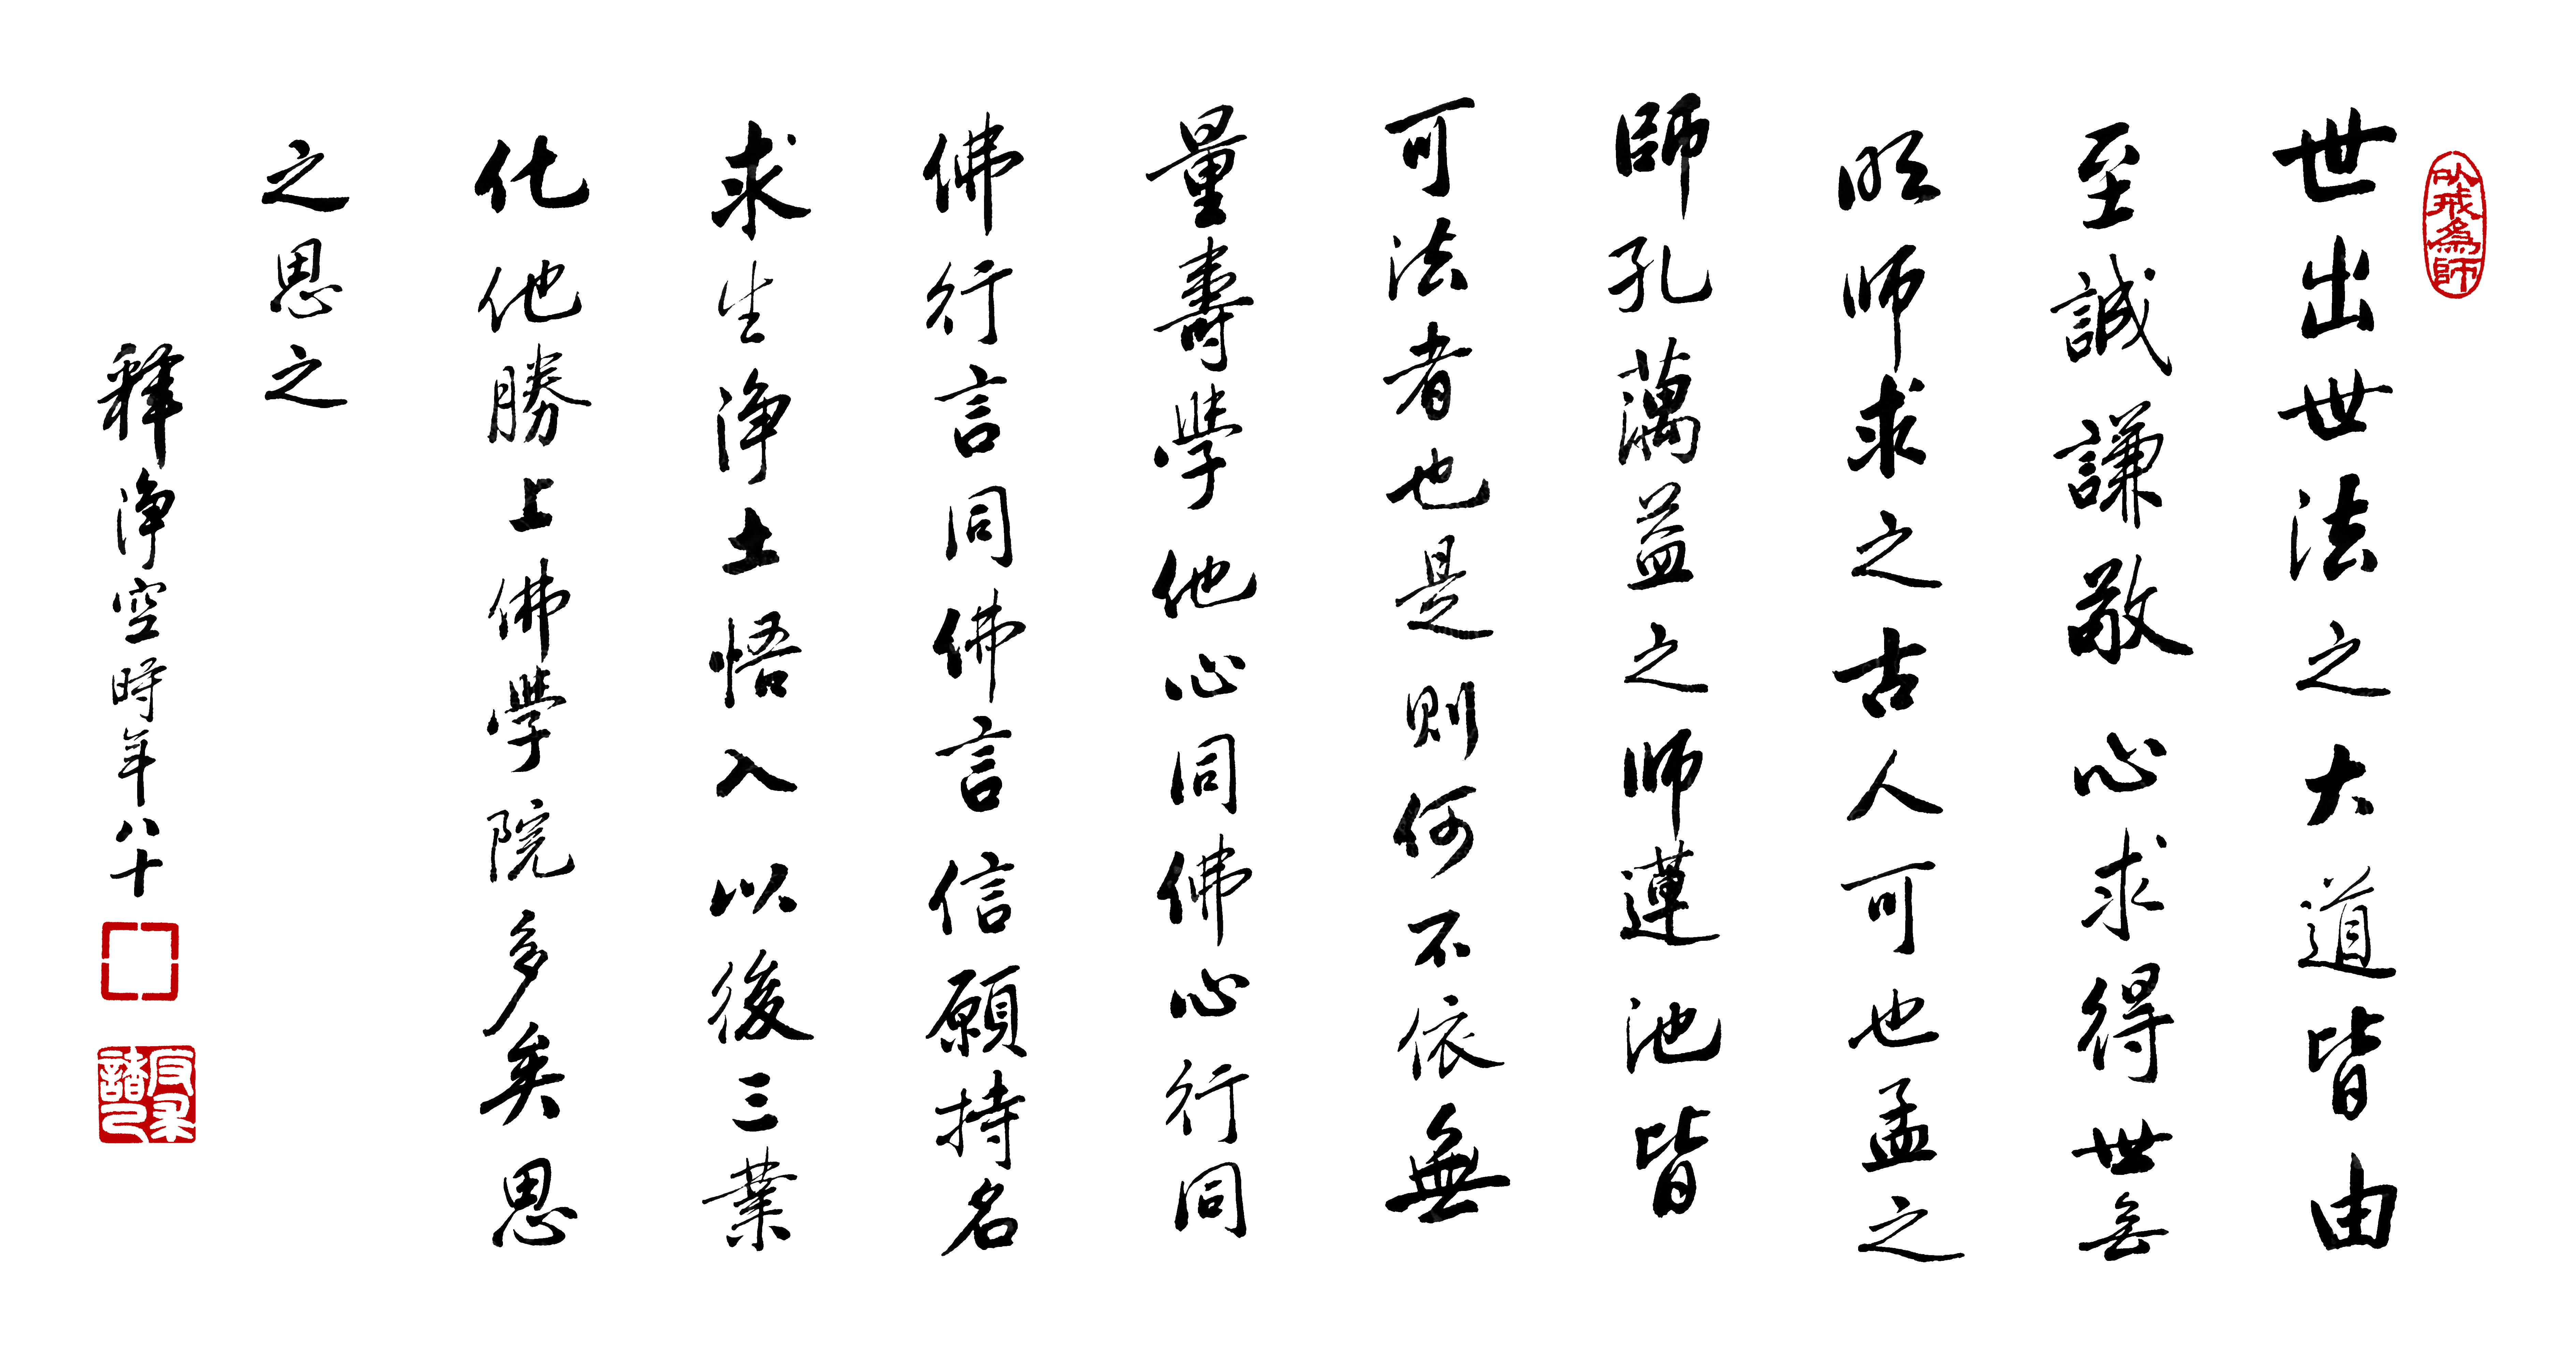 以戒為師
世出世世法之大道皆由
至誠謙敬心求得世無
明師求之古人可也孟之
師孔蕅益之師蓮池皆
可法者也是則何不依無
量壽學他心同佛心行同
佛行言同佛言信願持名
求生淨土悟入以後三業
化他勝上佛學院多矣思
之思之
釋淨空時年八十
反求諸己